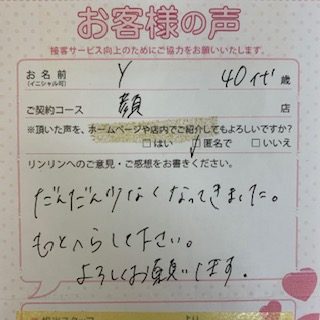 お客様の声
接客サービス向上のためにご協力をお願いいたします。
お名前 (イニシャル可) Y 40代 歳
ご契約コース 顔 店
※頂いた声を、ホームページや店内でご紹介してもよろしいですか?
□はい ☑匿名で □いいえ
リンリンへのご意見・ご感想をお書きください。
だんだん少なくなってきました。
もっとへらして下さい。
よろしくお願いします.
担当スタッフ より